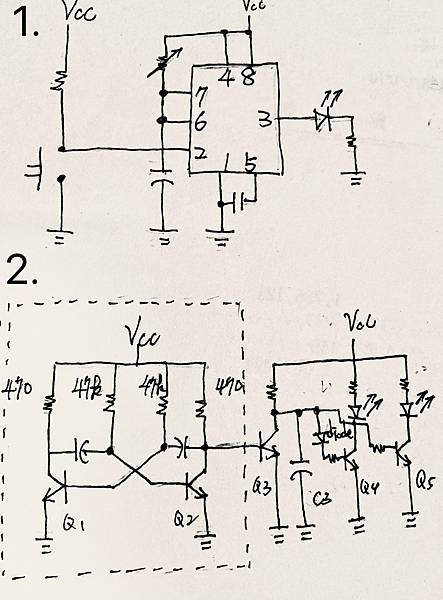 1.
Vcc
Vcc
4 8
7
6
3
2
1 5
2.
Vcc
Vcc
470
47k
47k
470
diode
Q3
C3
Q4
Q5
Q1
Q2